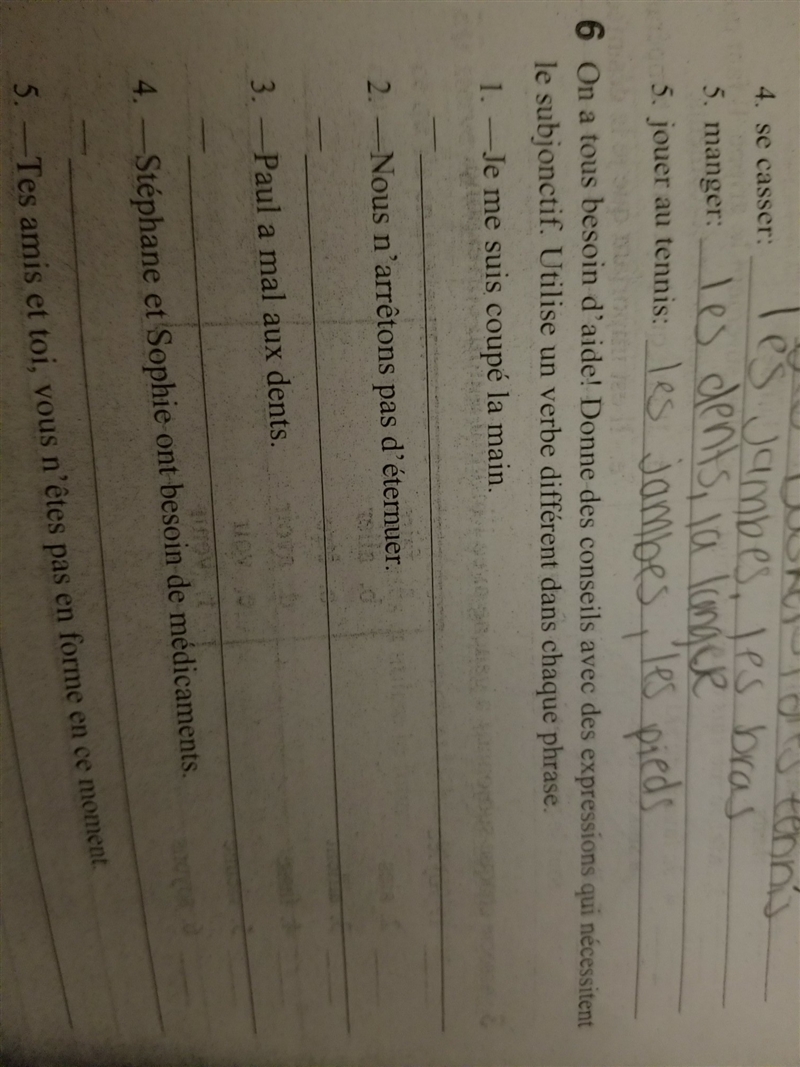 4. se casser: les jambes, les bras
5. manger: les dents, la langue
5. jouer au tennis: les jambes, les pieds
6 On a tous besoin d'aide! Donne des conseils avec des expressions qui nécessitent
le subjonctif. Utilise un verbe différent dans chaque phrase.
1. —Je me suis coupé la main.
—
2. —Nous n'arrêtons pas d'éternuer.
—
3. —Paul a mal aux dents.
—
4. —Stéphane et Sophie ont besoin de médicaments.
—
5. —Tes amis et toi, vous n'êtes pas en forme en ce moment.